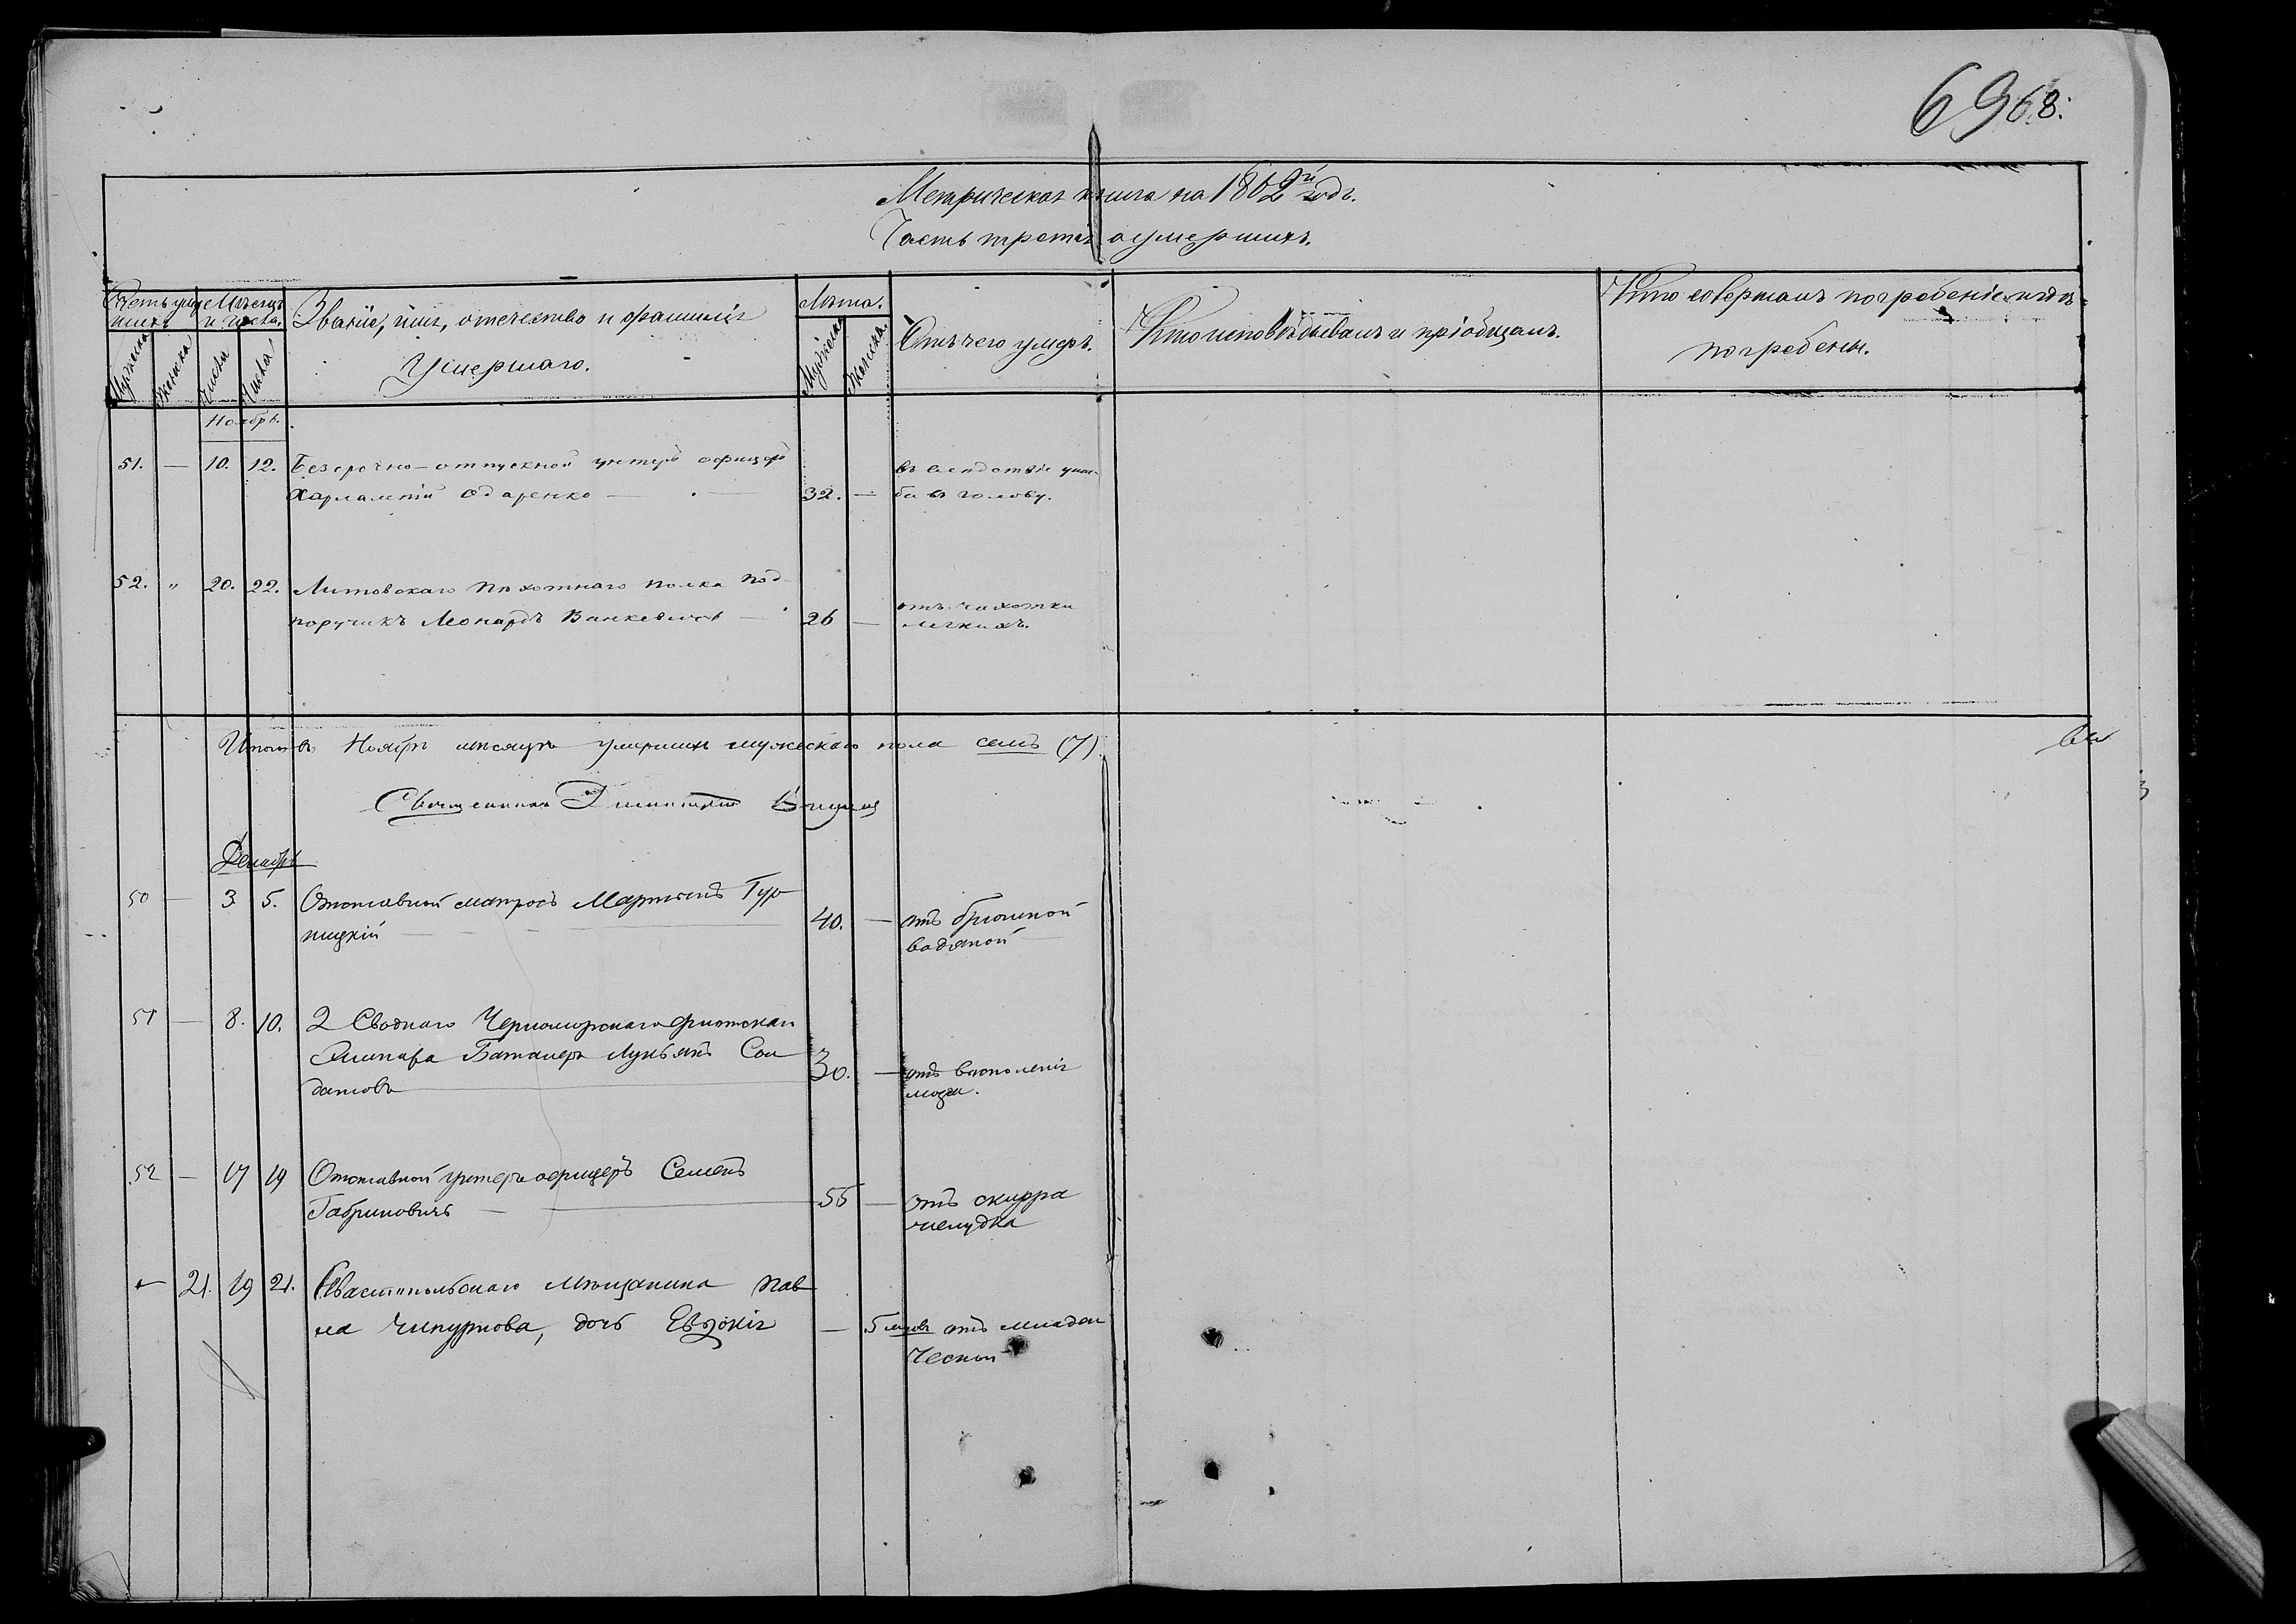 6968.
Метрическая книга на 1862й годъ.
Часть третія о умершихъ.
Счетъ умершихъ
Мѣсяцъ и числа.
Званіе, имя, отечество и фамилія
Умершаго.
Лѣта.
Отъ чего умеръ.
Кто исповѣдывалъ и пріобщалъ.
Кто совершалъ погребеніе и гдѣ
погребены.
Мужеска Женска Числа Числа Мужеска Женска
Ноябрь.
51. — 10. 12. Безсрочно-отпускной унтеръ офицеръ въ слѣдствіе уши-
Харлампій Одаренко — 32. — ба въ голову.
52. " 20. 22. Литовскаго пѣхотнаго полка под-
поручикъ Леонардъ Ванкевичъ — 26 — отъ чахотки
легкихъ.
Итого въ Ноябрѣ мѣсяцѣ умершихъ мужескаго пола семь (7)
Священникъ Димитрій
Декабрь
50 — 3 5. Отставной матросъ Мартынъ Гур-
ницкій — 40. — отъ брюшной
водяной
51 — 8. 10. 2 Своднаго Черноморскаго флотскаго
Экипажа Баталеръ Лукьянъ Сол
датовъ 30. — отъ воспаленія
мозга.
52 — 17 19 Отставной унтеръ офицеръ Семенъ
Габриновичъ — 55 — Отъ скирра
желудка
— 21. 19 21. Севастопольскаго мѣщанина Пав
ла Чипурнова, дочь Евдокія — 5 мцовъ отъ младен
ческой